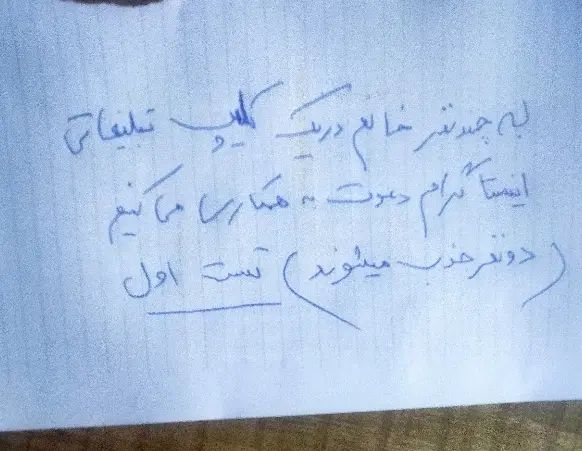 به چند نفر خانم در یک کلیپ تبلیغاتی
اینستاگرام دعوت به همکاری می کنیم
(دو نفر جذب میشوند) تست اول